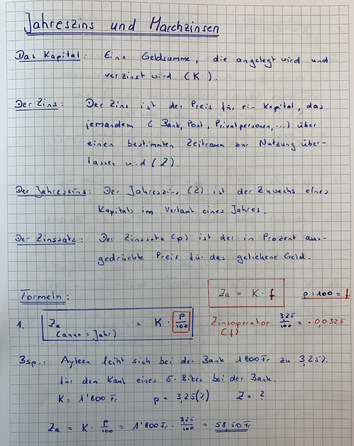 Jahreszins und Marchzinsen
Das Kapital: Eine Geldsumme, die angelegt wird und
verzinst wird (K).
Der Zins: Der Zins ist der Preis für ein Kapital, das
jemandem (Bank, Post, Privatpersonen, ...) über
einen bestimmten Zeitraum zur Nutzung über-
lassen wird (Z).
Der Jahreszins: Der Jahreszins (Z) ist der Zuwachs eines
Kapitals im Verlauf eines Jahres.
Der Zinssatz: Der Zinssatz (p) ist der in Prozent aus-
gedrückte Preis für das geliehene Geld.
Formeln: Za = K · f p : 100 = f
1. Za = K · p/100 Zinsoperator 3,25/100 = 0,0325
(anno = Jahr) (f)
Bsp.: Ayleen leiht sich bei der Bank 1800 Fr. zu 3,25%
für den Kauf eines E-Bikes bei der Bank.
K = 1'800 Fr. p = 3,25(%) Z = ?
Za = K · p/100 = 1'800 Fr. · 3,25/100 = 58.50 Fr.